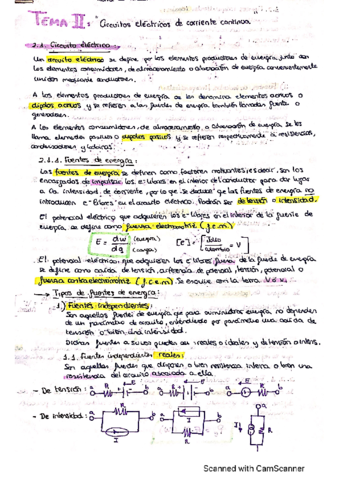 TEMA II: Circuitos eléctricos de corriente continua
2.1. Circuito eléctrico.
Un circuito eléctrico se define por los elementos productores de energía, junto con
los elementos consumidores, de almacenamiento o absorción de energía convenientemente
unidos mediante conductores.
A los elementos productores de energía se les denomina elementos activos o
dipolos activos y se refieren a las fuentes de energía también llamadas fuentes o
generadores.
A los elementos consumidores, de almacenamiento o absorción de energía, se les
llama elementos pasivos o dipolos pasivos y se refieren respectivamente a resistencias,
condensadores y bobinas.
2.1.1. Fuentes de energía:
Las fuentes de energía se definen como factores motrices es decir, son los
encargados de impulsar los e⁻ libres en el interior del conductor para dar lugar
a la intensidad de corriente, por lo que se deduce que las fuentes de energía no
introducen e⁻ libres en el circuito eléctrico. Podrán ser de tensión o intensidad.
El potencial eléctrico que adquieren los e⁻ libres en el interior de la fuente de
energía, se define como fuerza electromotriz (f.e.m)
E = dw (energía) / dq (carga) [E] = [Julio / Coulombio = V]
El potencial eléctrico, que adquieren los e⁻ libres fuera de la fuente de energía
se define como caída de tensión, diferencia de potencial, tensión, potencial o
fuerza contraelectromotriz (f.c.e.m). Se escribe con la letra
Tipos de fuentes de energía:
1.) Fuentes Independientes:
Son aquellas fuentes de energía que para suministrar energía, no dependen
de un parámetro de circuito, entendiendo por parámetro una caída de
tensión o bien una intensidad.
Dichas fuentes a su vez pueden ser reales o ideales y de tensión o intens.
1.1. Fuente independiente reales:
Son aquellas fuentes que disponen o bien resistencia interna o bien una
resistencia del circuito asociada a ella.
- De tensión: a R b a R b a R b
- De intensidad: a R b I a R b I a R I b
Scanned with CamScanner